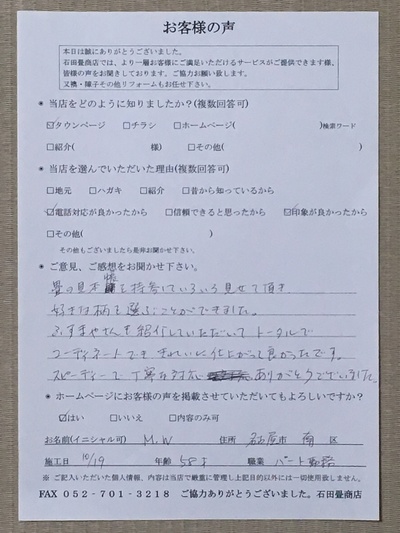 お客様の声
本日は誠にありがとうございました。
石田畳商店では、より一層お客様にご満足いただけるサービスがご提供できます様、
皆様の声をお聞きしております。ご協力お願い致します。
又襖・障子その他リフォームもお任せ下さい。
* 当店をどのように知りましたか?(複数回答可)
☑タウンページ □チラシ □ホームページ( )検索ワード
□紹介( 様) □その他( )
* 当店を選んでいただいた理由(複数回答可)
□地元 □ハガキ □紹介 □昔から知っているから
☑電話対応が良かったから □信頼できると思ったから ☑印象が良かったから
□その他( )
その他もございましたら是非お聞かせ下さい。
* ご意見、ご感想をお聞かせ下さい。
畳の見本帳を持参していろいろ見せて頂き
好きな柄を選ぶことができました。
ふすまやさんも紹介していただいて トータルで
コーディネートでき きれいに仕上がって良かったです。
スピーディーで丁寧な対応 ありがとうございました。
* ホームページにお客様の声を掲載させていただいてもよろしいですか?
☑はい □いいえ □内容のみ可
お名前(イニシャル可) M.W 住所 名古屋市 南 区
施工日 10/19 年齢 58才 職業 パート事務
※ ご記入いただいた個人情報、内容は当店で厳重に管理し上記目的以外には一切使用致しません。
FAX 052-701-3218 ご協力ありがとうございました。石田畳商店